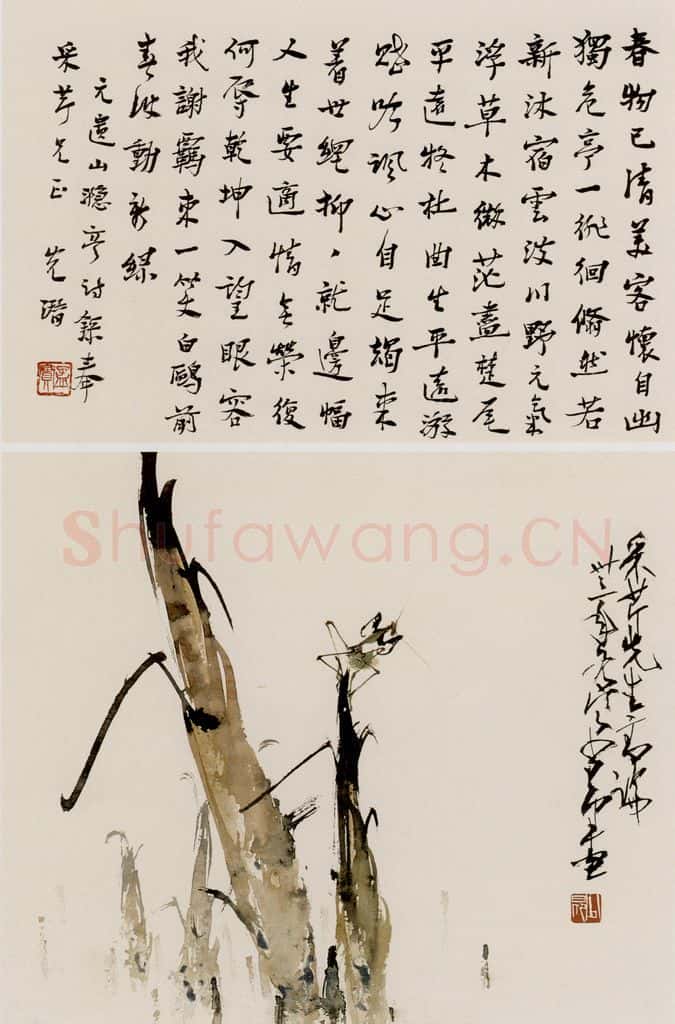 春物已清美客懷自幽
獨危亭一徘徊翛然若
新沐宿雲淡川野元氣
浮草木微茫盡楚尾
平遠杜曲生平遠游
賦吟諷心自足朅來
著世網抑、就邊幅
人生要適情無榮復
何辱乾坤入望眼容
我謝羈束一笑白鷗前
春波動新綠
元遺山亭詩錄奉
采芹兄正
采芹先生
卅三年少昂畫
Shufawang.CN